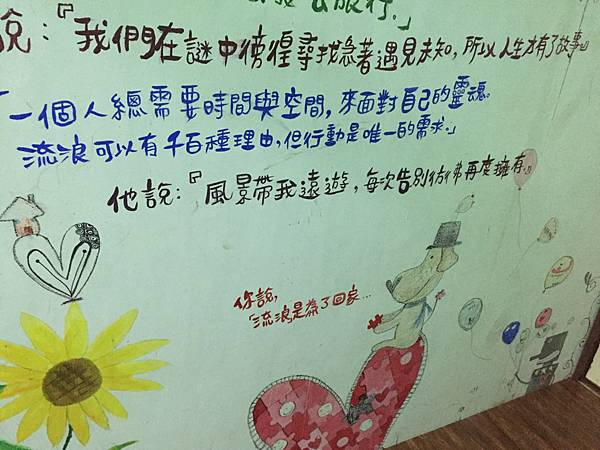 旅行.」
說:『我們在謎中徬徨尋找急著遇見未知,所以人生才有了故事』
「一個人總需要時間與空間,來面對自己的靈魂。
流浪可以有千百種理由,但行動是唯一的需求.」
他說:『風景帶我遠遊,每次告別彷彿再度擁有.』
你說,
「流浪是為了回家...